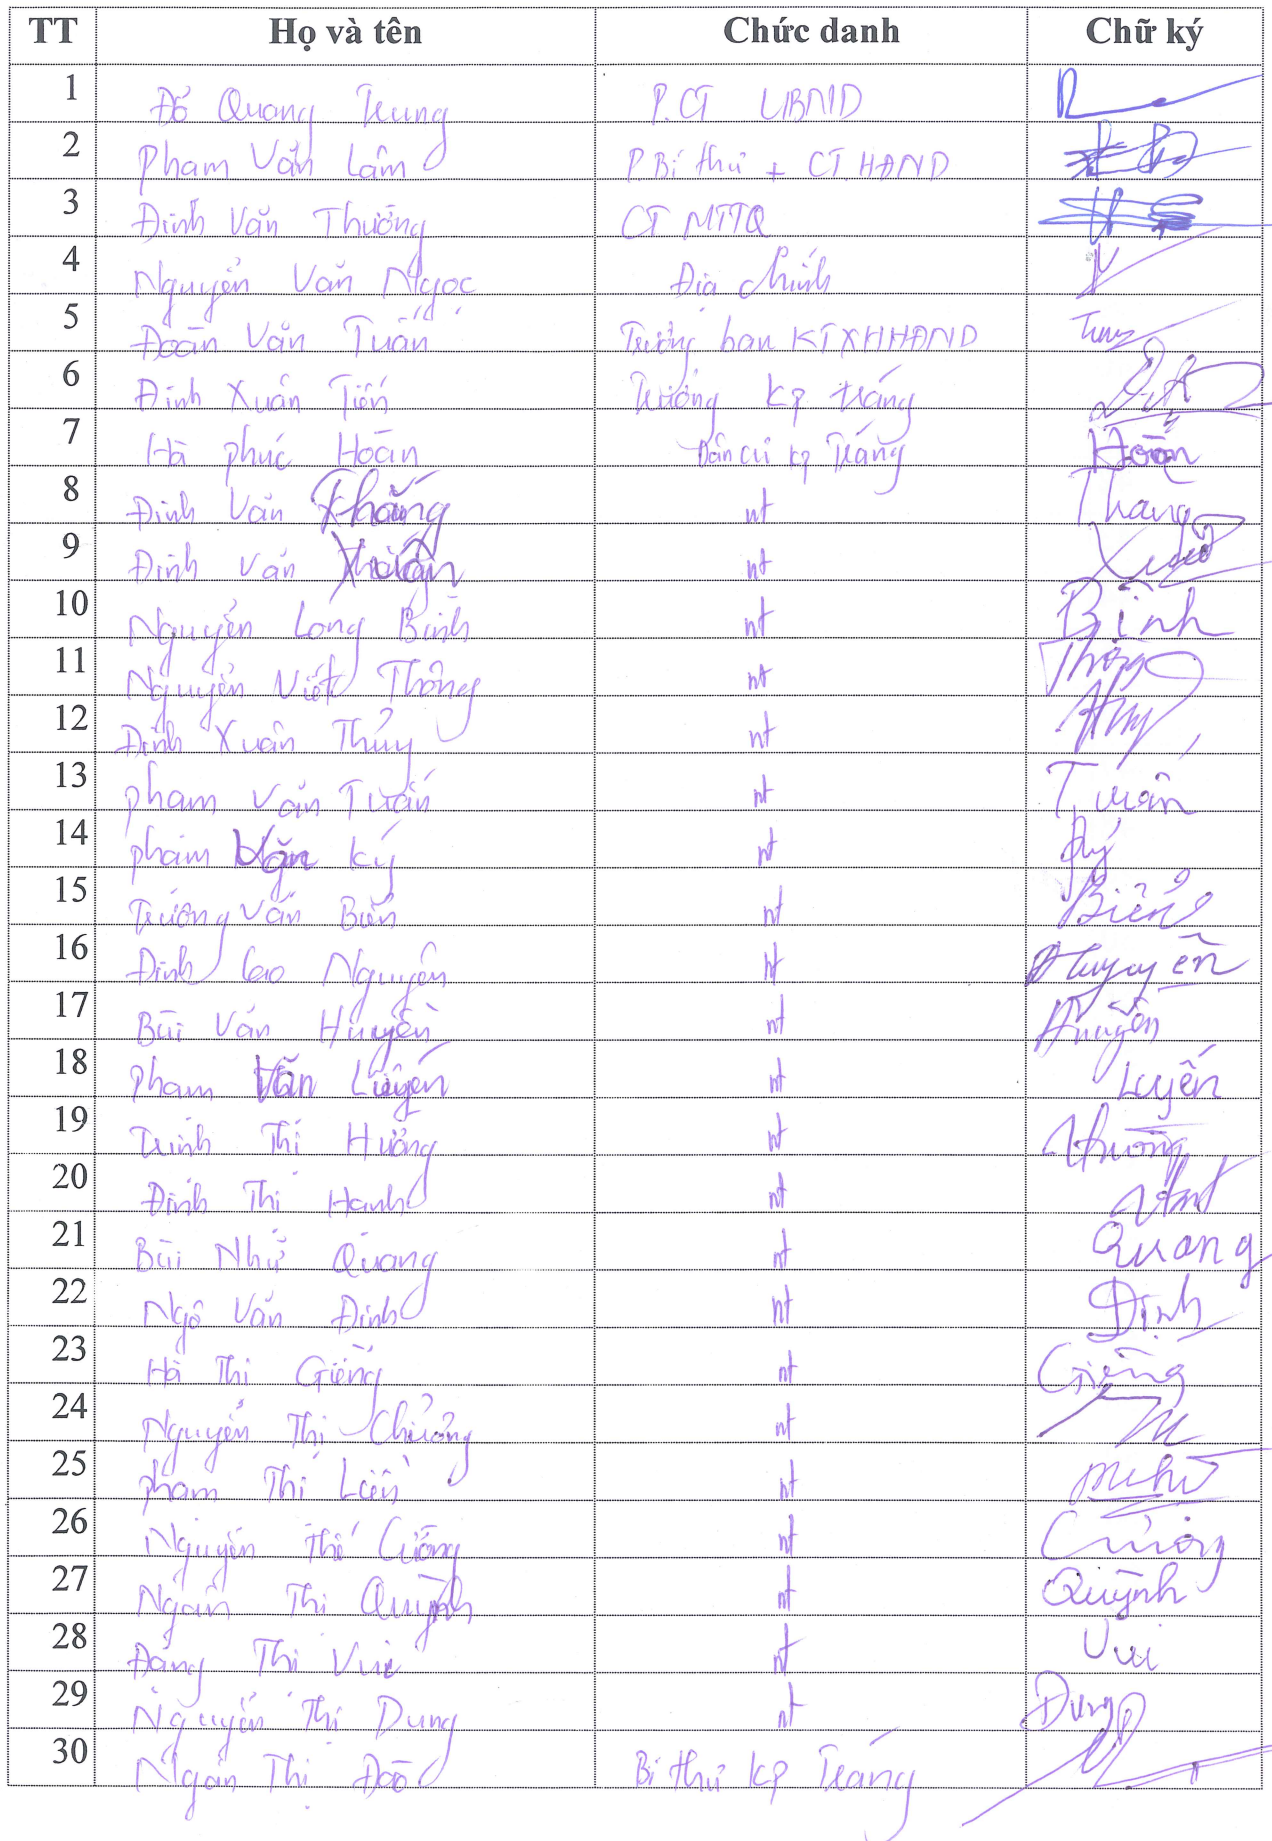 TT Họ và tên Chức danh Chữ ký
1 Đỗ Quang Trung P.CT UBND
2 Phạm Văn Lâm P Bí thư + CT.HĐND
3 Đinh Văn Thưởng CT MTTQ
4 Nguyễn Văn Ngọc Địa chính
5 Đoàn Văn Tuấn Trưởng ban KTXHHĐND
6 Đinh Xuân Tiến Trưởng KP Tráng
7 Hà phúc Hoàn Dân cư kp Tráng Hoàn
8 Đinh Văn Thắng nt Thang
9 Đinh Văn Xuân nt
10 Nguyễn Long Bình nt Bình
11 Nguyễn Viết Thông nt Thông
12 Đinh Xuân Thủy nt
13 Phạm Văn Tuấn nt Tuân
14 Phạm Văn Ký nt Ký
15 Trương Văn Biển nt Biển
16 Đinh Cao Nguyên nt
17 Bùi Văn Huyền nt Huyền
18 Phạm Văn Luyến nt Luyến
19 Trịnh Thị Hường nt Hường
20 Đinh Thị Hạnh nt
21 Bùi Như Quang nt Quang
22 Ngô Văn Định nt Định
23 Hà Thị Giêng nt Giêng
24 Nguyễn Thị Chưởng nt
25 Phạm Thị Liên nt
26 Nguyễn Thế Cường nt Cường
27 Ngân Thị Quỳnh nt Quỳnh
28 Đặng Thị Vui nt Vui
29 Nguyễn Thị Dung nt Dung
30 Ngân Thị Đào Bí thư KP Tráng